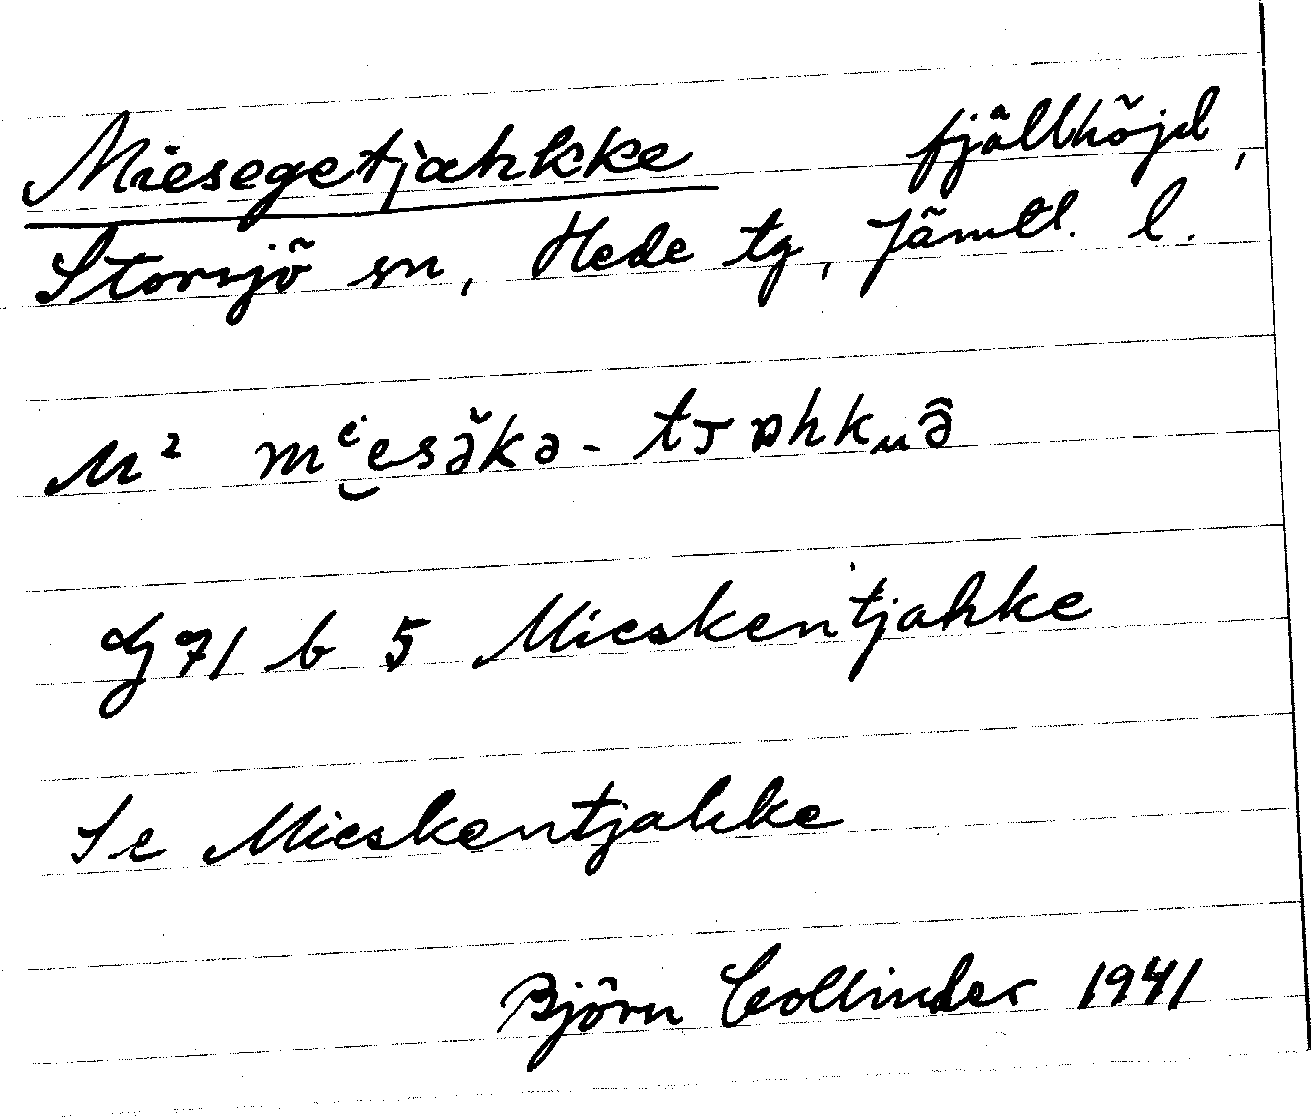 Miesegetjahkke fjällhöjd,
Storsjö sn, Hede tg, Jämtl. l.
M²
Lg 71 b 5 Mieskentjahke
Se Mieskentjakke
Björn Collinder 1941